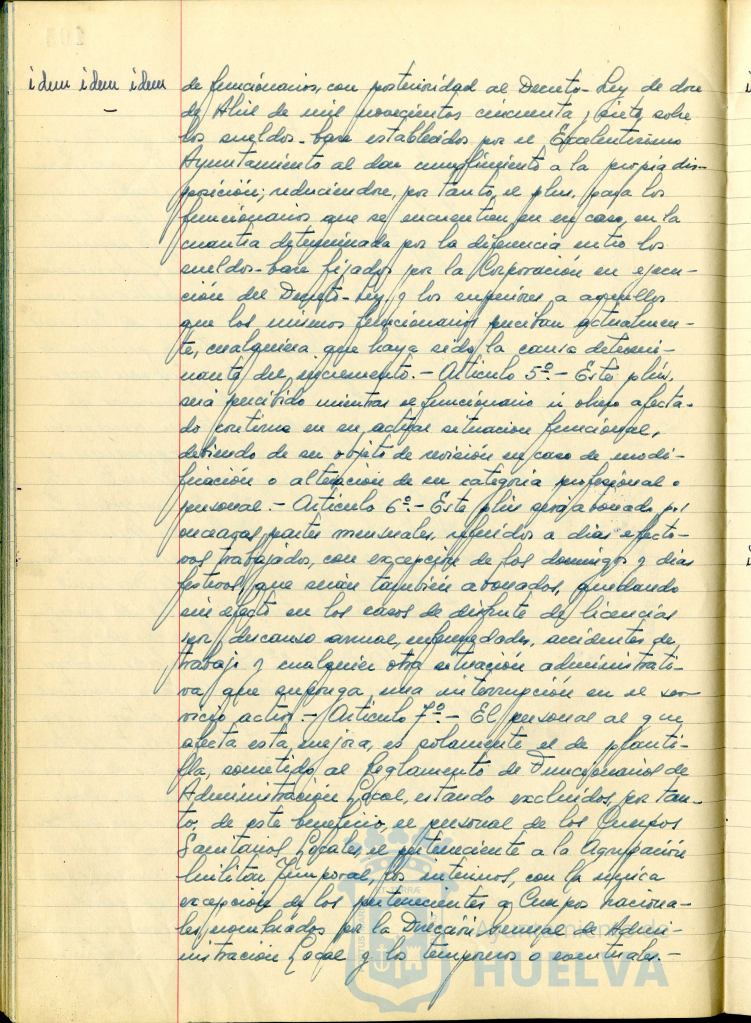 idem idem idem
de funcionarios, con posterioridad al Decreto-Ley de doce
de Abril de mil novecientos cincuenta y siete, sobre
los sueldos-base establecidos por el Excelentísimo
Ayuntamiento al dar cumplimiento a la propia dis-
posición; reduciendose, por tanto, el plus, para los
funcionarios que se encuentren en en caso, en la
cuantia determinada por la diferencia entre los
sueldos-base fijados por la Corporación en ejecu-
ción del Decreto-Ley y los superiores a aquellos
que los mismos funcionarios perciban actualmen-
te, cualquiera que haya sido la causa determi-
nante del incremento.- Articulo 5º.- Este plus,
será percibido mientras el funcionario u obrero afecta-
do continue en su actual situacion funcional,
debiendo de ser objeto de revisión en caso de modi-
ficación o alteración de su categoria profesional o
personal.- Articulo 6º.- Este plus será abonado por
partes mensuales, referidos a dias efecti-
vos trabajados, con excepción de los domingos y dias
festivos, que serán también abonados, quedando
sin efecto en los casos de disfrute de licencias
por descanso annual, enfermedades, accidentes de
trabajo y cualquier otra situación administrati-
va que suponga una interrupción en el ser-
vicio activo.- Articulo 7º.- El personal al que
afecta esta mejora, es solamente el de planti-
lla, sometido al Reglamento de Funcionarios de
Administración Local, estando excluidos, por tan-
to, de este beneficio, el personal de los Cuerpos
Sanitarios Locales, el perteneciente a la Agrupación
Militar Temporal, los interinos, con la unica
excepción de los pertenecientes a Cuerpos naciona-
les, nombrados por la Dirección General de Admi-
nistración Local y los temporeros o eventuales.-
Ayuntamiento de
HUELVA